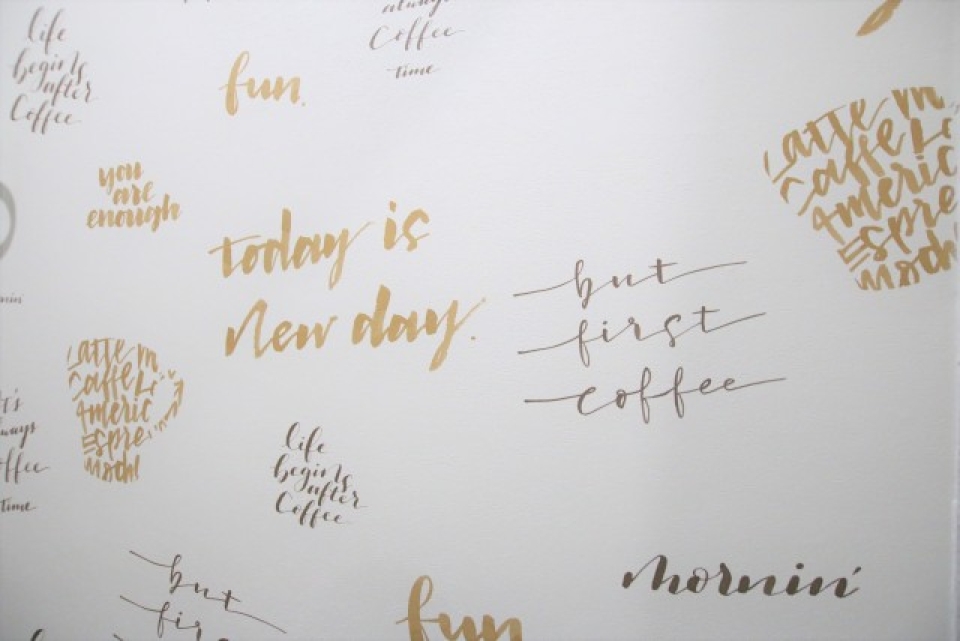 life
begins
after
Coffee
always
Coffee
time
fun.
you
are
enough
Latte
Caffe
Espre
today is
New day.
but
first
coffee
Latte
Caffe
Espre
it's
always
time
life
begins
after
Coffee
mornin'
but
fun